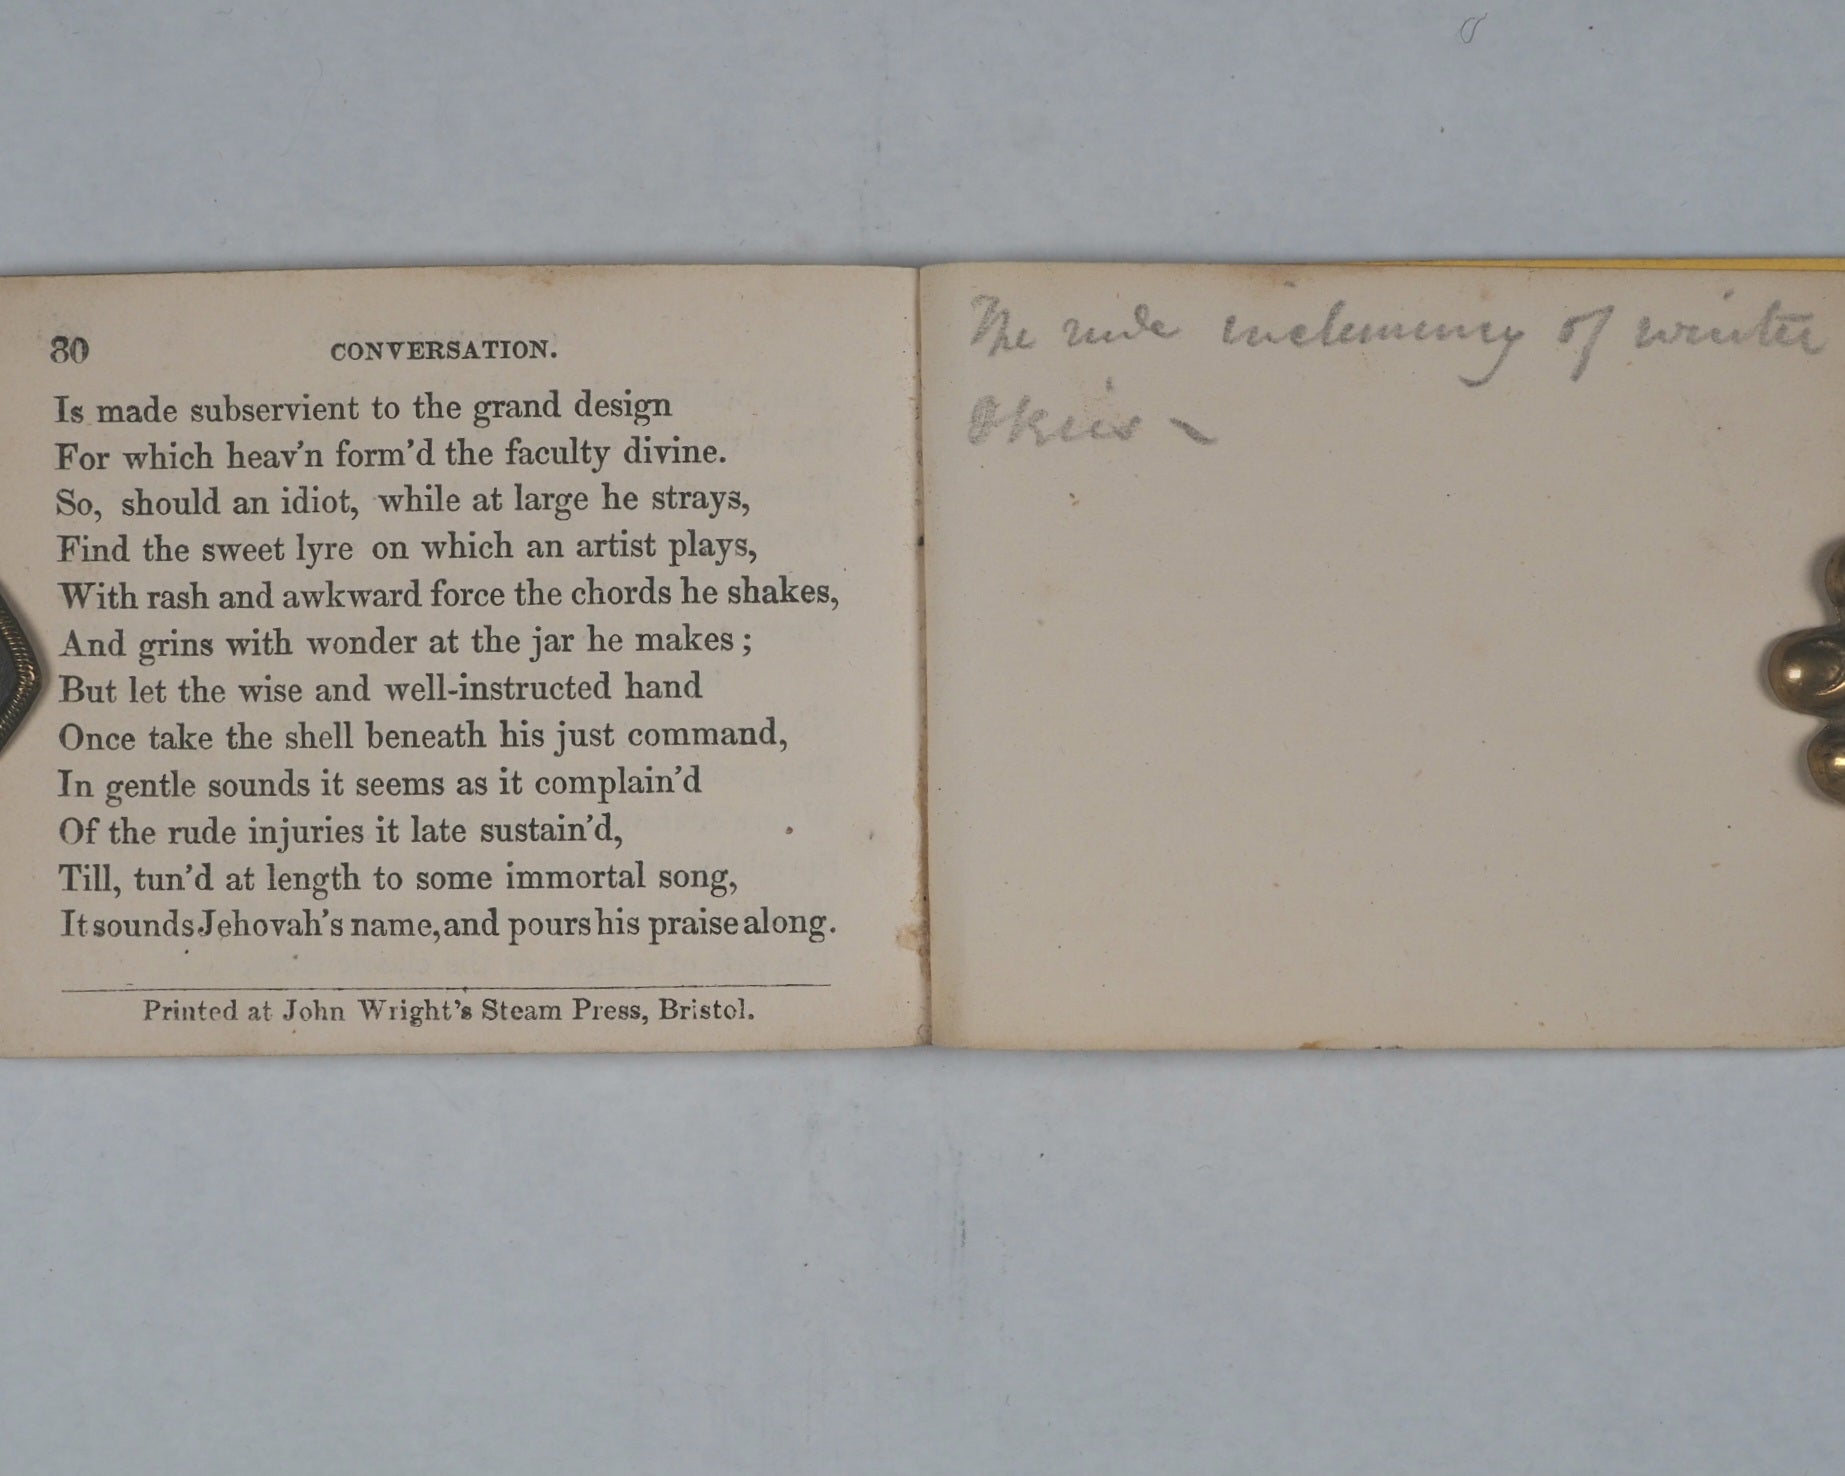 80 CONVERSATION.
Is made subservient to the grand design
For which heav'n form'd the faculty divine.
So, should an idiot, while at large he strays,
Find the sweet lyre on which an artist plays,
With rash and awkward force the chords he shakes,
And grins with wonder at the jar he makes;
But let the wise and well-instructed hand
Once take the shell beneath his just command,
In gentle sounds it seems as it complain'd
Of the rude injuries it late sustain'd,
Till, tun'd at length to some immortal song,
It sounds Jehovah's name, and pours his praise along.
Printed at John Wright's Steam Press, Bristol.
The rude inclemency of winter
Skies -